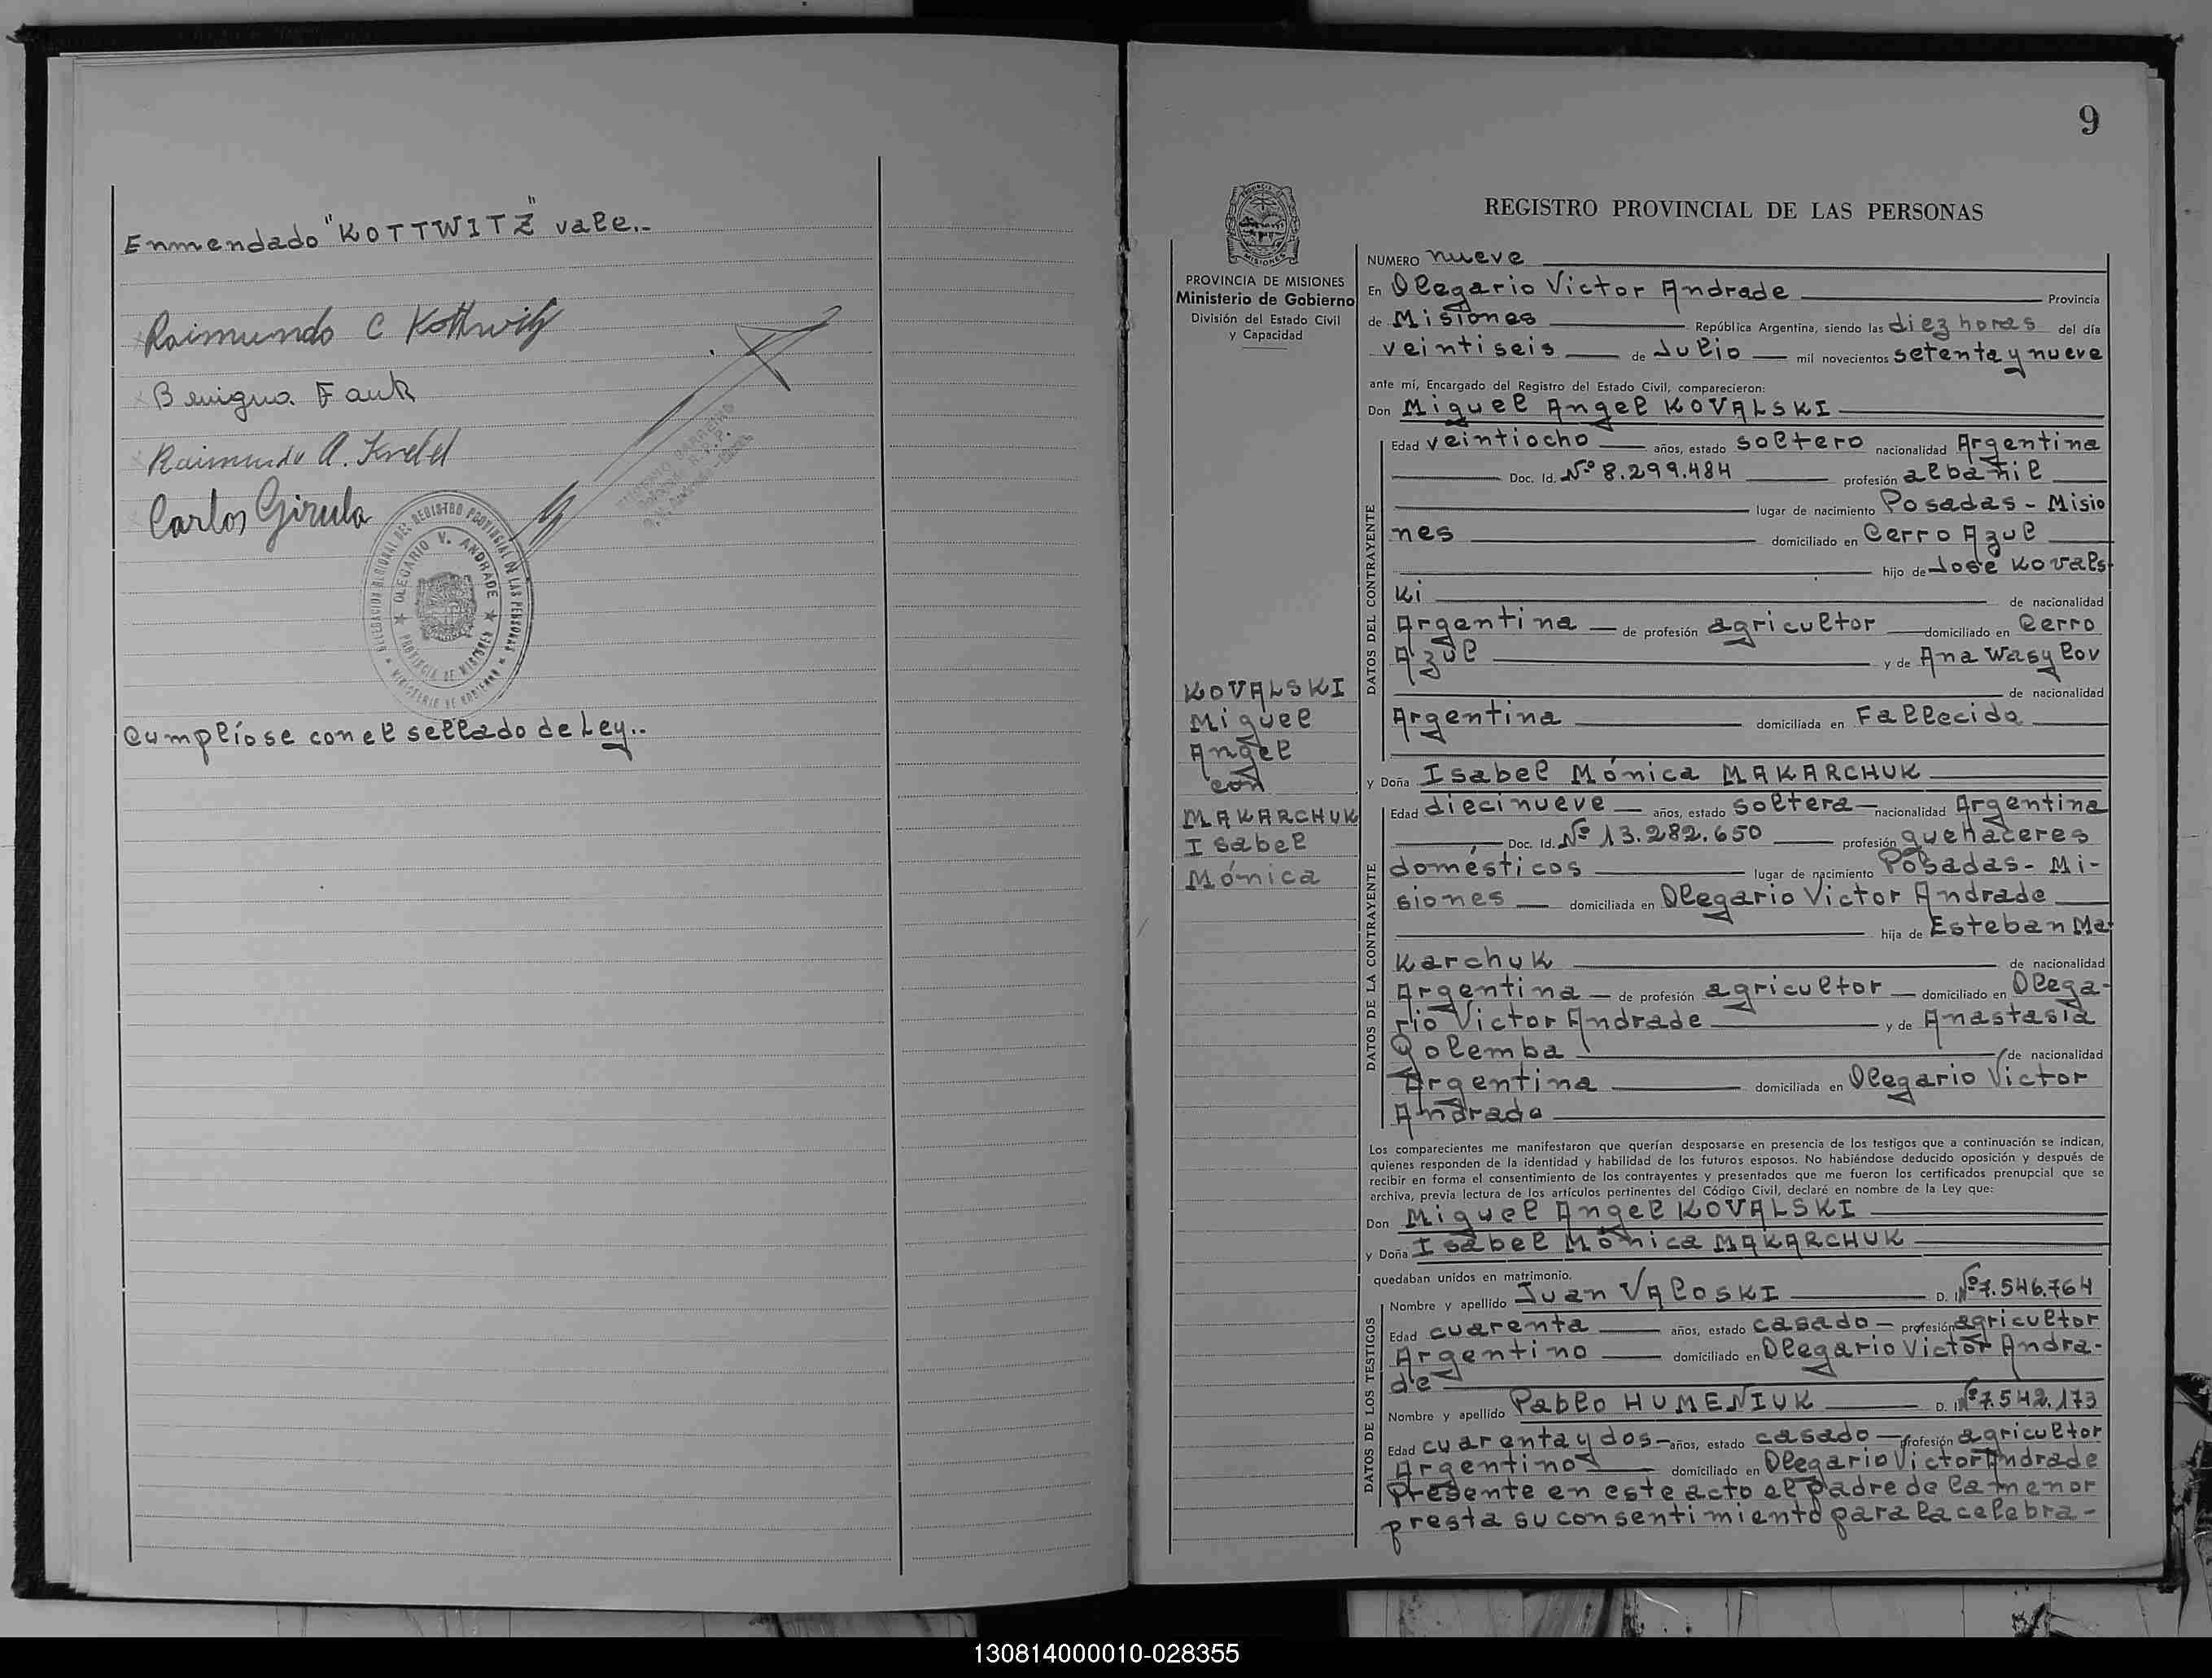 Enmendado "KOTTWITZ" vale.-
Raimundo C Kottwitz
Benigna Fauk
Raimundo A.
Carlos Girula
DELEGACION REGIONAL DEL REGISTRO PROVINCIAL DE LAS PERSONAS
OLEGARIO V. ANDRADE
PROVINCIA DE MISIONES
MINISTERIO DE GOBIERNO
Cumplíose con el sellado de Ley..
9
PROVINCIA DE MISIONES
Ministerio de Gobierno
División del Estado Civil
y Capacidad
KOVALSKI
Miguel
Angel
con
MAKARCHUK
Isabel
Mónica
REGISTRO PROVINCIAL DE LAS PERSONAS
NUMERO nueve
En Olegario Victor Andrade Provincia
de Misiones República Argentina, siendo las diez horas del día
veintiseis de Julio mil novecientos setenta y nueve
ante mí, Encargado del Registro del Estado Civil, comparecieron:
Don Miguel Angel KOVALSKI
DATOS DEL CONTRAYENTE
Edad veintiocho años, estado soltero nacionalidad Argentina
Doc. Id. Nº 8.299.484 profesión albañil
lugar de nacimiento Posadas - Misio
nes domiciliado en Cerro Azul
hijo de José Kovals-
ki de nacionalidad
Argentina de profesión agricultor domiciliado en Cerro
Azul y de Ana Wasylov
de nacionalidad
Argentina domiciliada en Fallecida
y Doña Isabel Mónica MAKARCHUK
DATOS DE LA CONTRAYENTE
Edad diecinueve años, estado soltera nacionalidad Argentina
Doc. Id. Nº 13.282.650 profesión quehaceres
domésticos lugar de nacimiento Posadas - Mi-
siones domiciliada en Olegario Victor Andrade
hija de Esteban Ma-
karchuk de nacionalidad
Argentina de profesión agricultor domiciliado en Olega-
rio Victor Andrade y de Anastasia
Golemba de nacionalidad
Argentina domiciliada en Olegario Victor
Andrade
Los comparecientes me manifestaron que querían desposarse en presencia de los testigos que a continuación se indican,
quienes responden de la identidad y habilidad de los futuros esposos. No habiéndose deducido oposición y después de
recibir en forma el consentimiento de los contrayentes y presentados que me fueron los certificados prenupcial que se
archiva, previa lectura de los artículos pertinentes del Código Civil, declaré en nombre de la Ley que:
Don Miguel Angel KOVALSKI
y Doña Isabel Mónica MAKARCHUK
quedaban unidos en matrimonio.
DATOS DE LOS TESTIGOS
Nombre y apellido Juan VALOSKI D. I. Nº 7.546.764
Edad cuarenta años, estado casado profesión agricultor
Argentino domiciliado en Olegario Victor Andra-
de
Nombre y apellido Pablo HUMENIUK D. I. Nº 7.542.173
Edad cuarenta y dos años, estado casado profesión agricultor
Argentino domiciliado en Olegario Victor Andrade
Presente en este acto el padre de la menor
presta su consentimiento para la celebra-
130814000010-028355